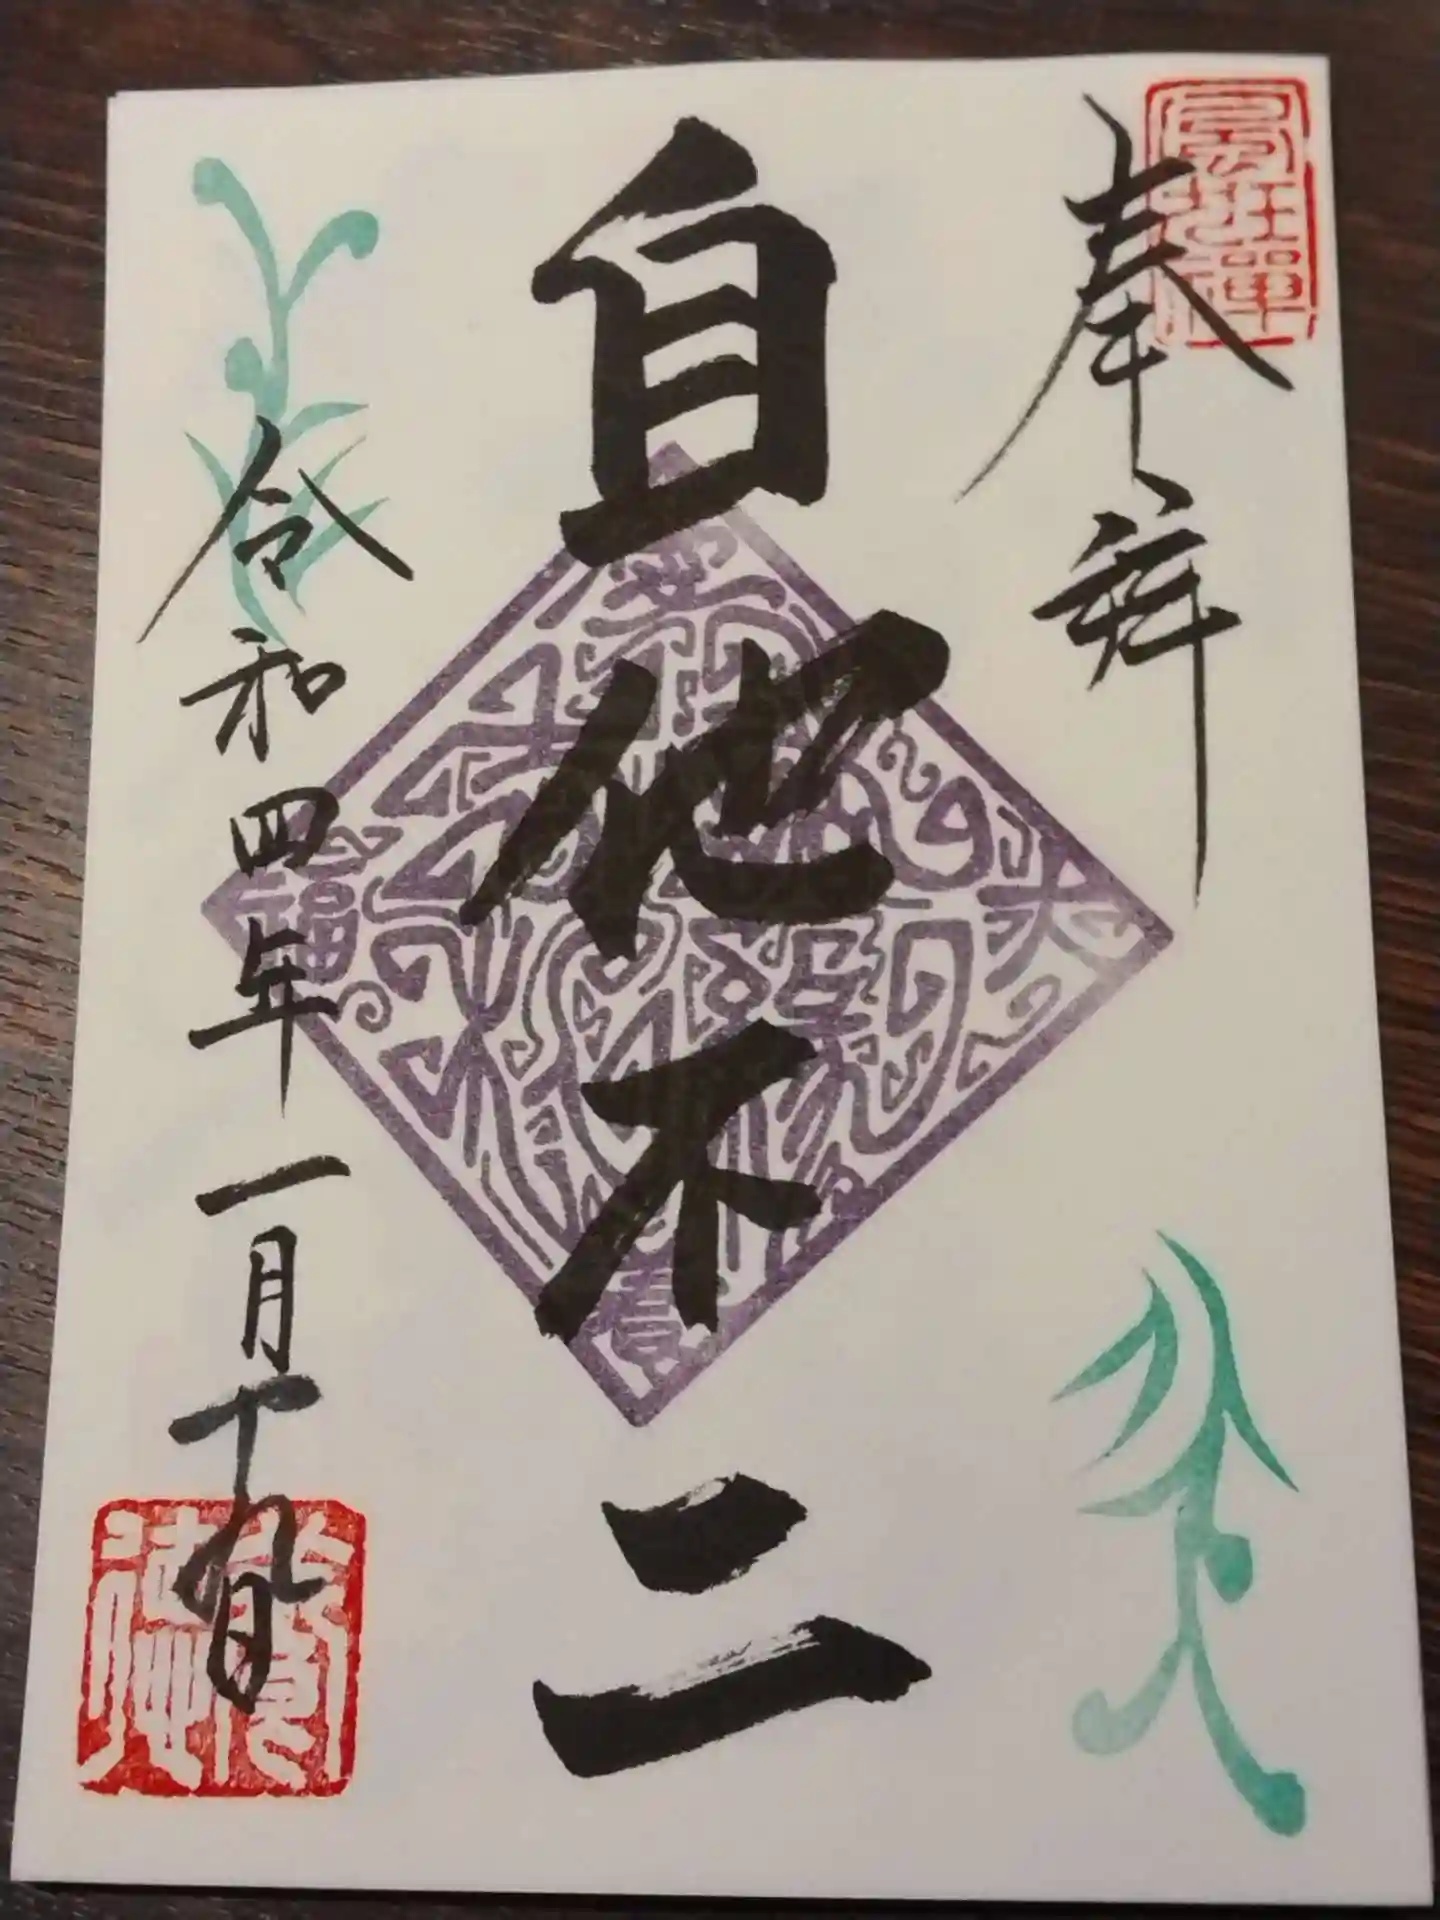 奉拝
自他不二
令和四年一月十九日